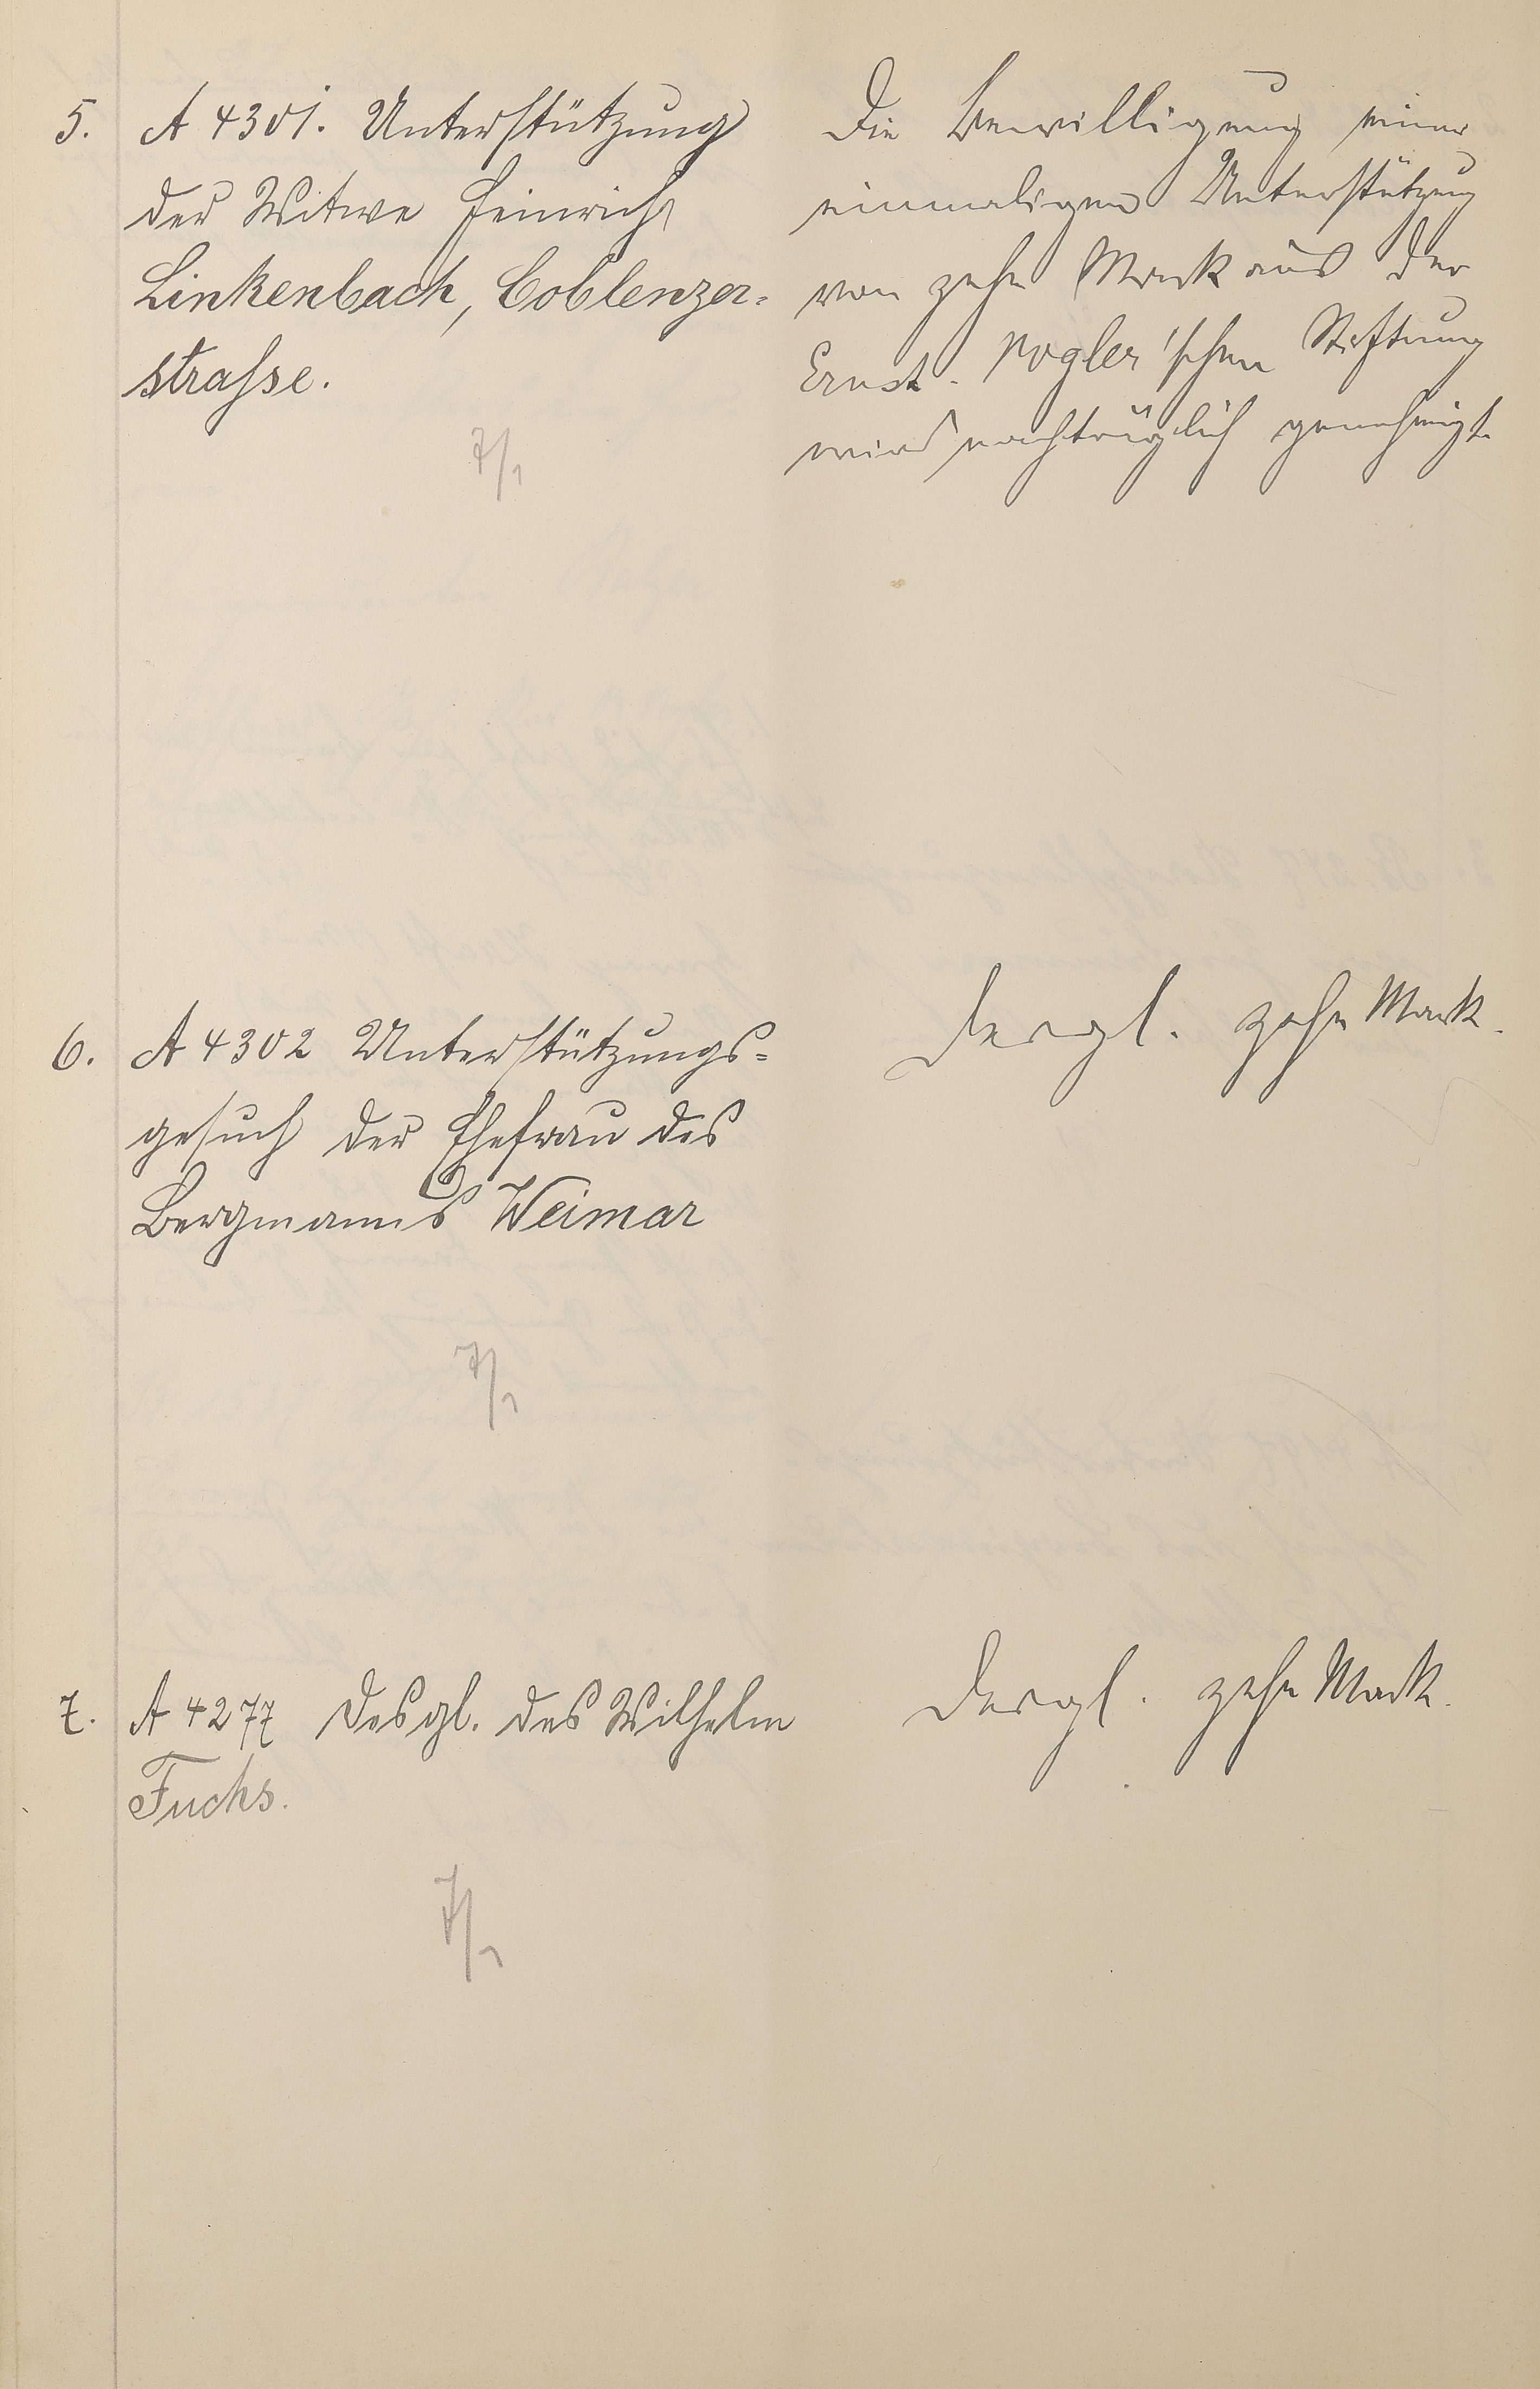 5. A 4301. Unterstützung
der Witwe Heinrich
Linkenbach, Coblenzer-
strasse.
7/1
Die Bewilligung einer
einmaligen Unterstützung
von zehn Mark aus der
Ernst-Vogler'schen Stiftung
wird nachträglich genehmigt.
6. A 4302 Unterstützungs-
gesuch der Ehefrau des
Bergmanns Weimar
7/1
Desgl. zehn Mark.
7. A 4277 Desgl. des Wilhelm
Fuchs.
7/1
Desgl. zehn Mark.